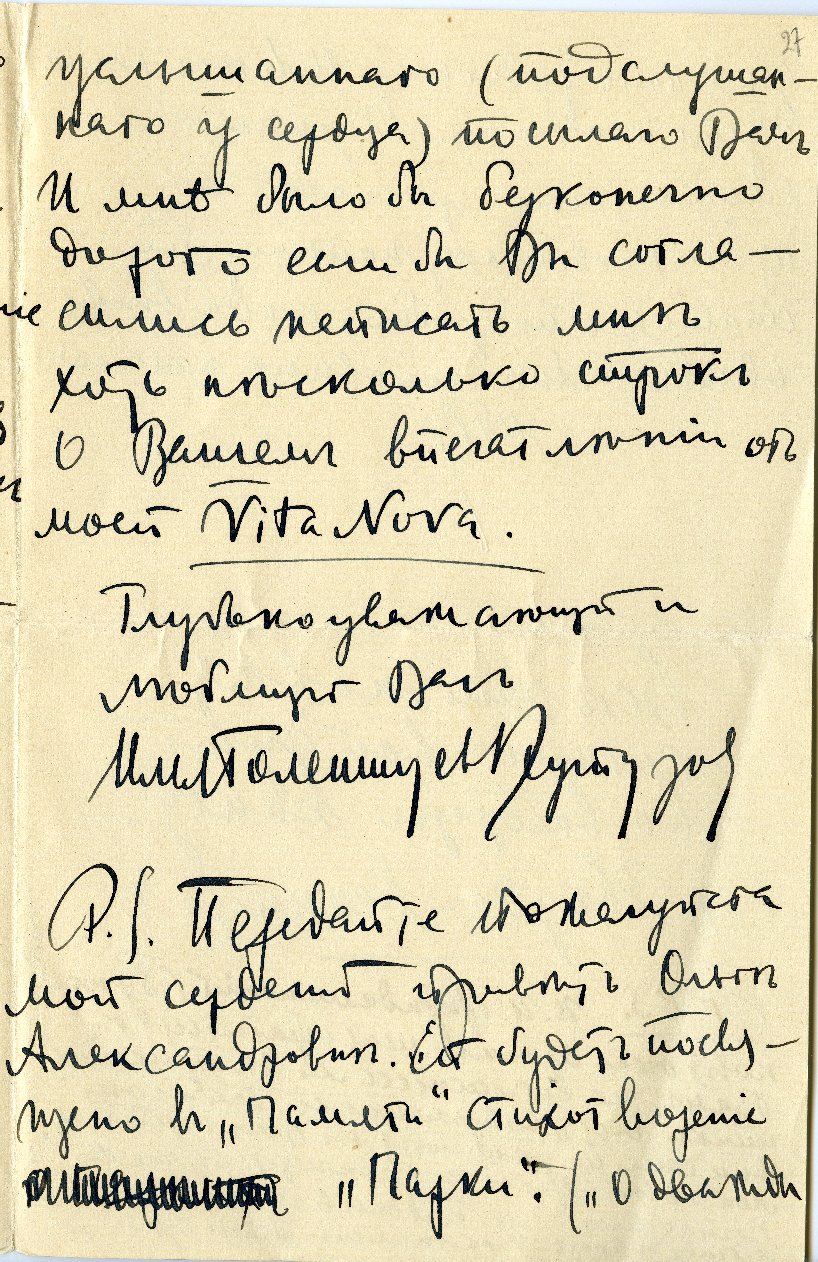 27
услышаннаго (подслушан-
наго у сердца) посылаю Вамъ
И мнѣ было бы безконечно
дорого если бы Вы согла-
сились написать мнѣ
хоть нѣсколько строкъ
о Вашемъ впечатлѣніи отъ
моей Vita Nova.
Глубокоуважающій и
любящій Васъ
Голенищевъ Кутузов
P.S. Передайте пожалуйста
мой сердечный привѣтъ Ольгѣ
Александровнѣ. Ей будетъ посвя-
щено въ „Памяти“ стихотвореніе
„Парки“. („О дважды